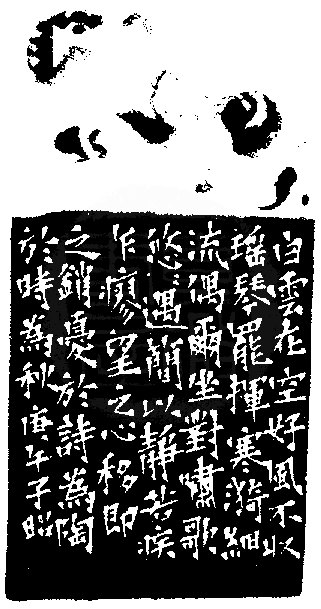 白雲在空好風不收
瑶琴罷揮寒漪細
流偶爾坐對嘯歌
悠〻遇簡以静若疾
乍瘳望之心移即
之銷憂於詩為陶
於時為秋庚午子昭